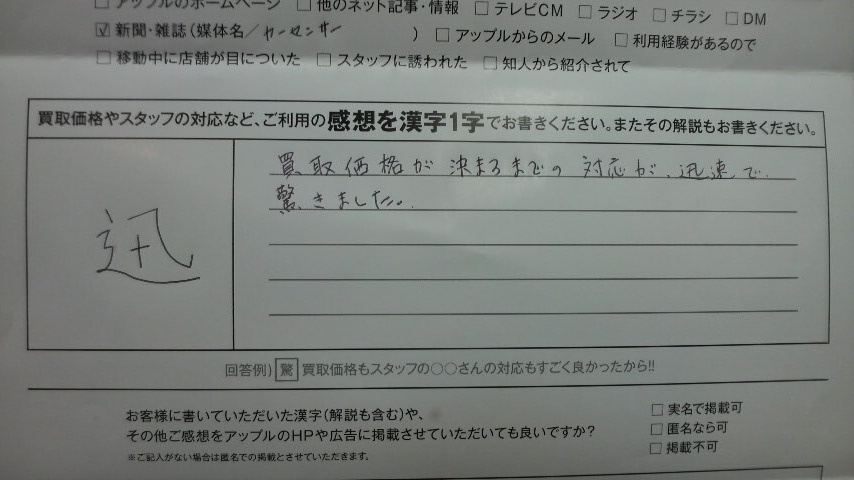 □ アップルのホームページ □ 他のネット記事・情報 □ テレビCM □ ラジオ □ チラシ □ DM
☑ 新聞・雑誌(媒体名/カーセンサー ) □ アップルからのメール □ 利用経験があるので
□ 移動中に店舗が目についた □ スタッフに誘われた □ 知人から紹介されて
買取価格やスタッフの対応など、ご利用の感想を漢字1字でお書きください。またその解説もお書きください。
迅
買取価格が決まるまでの対応が、迅速で
驚きました。
回答例) 驚 買取価格もスタッフの○○さんの対応もすごく良かったから!!
お客様に書いていただいた漢字(解説も含む)や、
その他ご感想をアップルのHPや広告に掲載させていただいても良いですか?
※ご記入がない場合は匿名での掲載とさせていただきます。
□ 実名で掲載可
□ 匿名なら可
□ 掲載不可